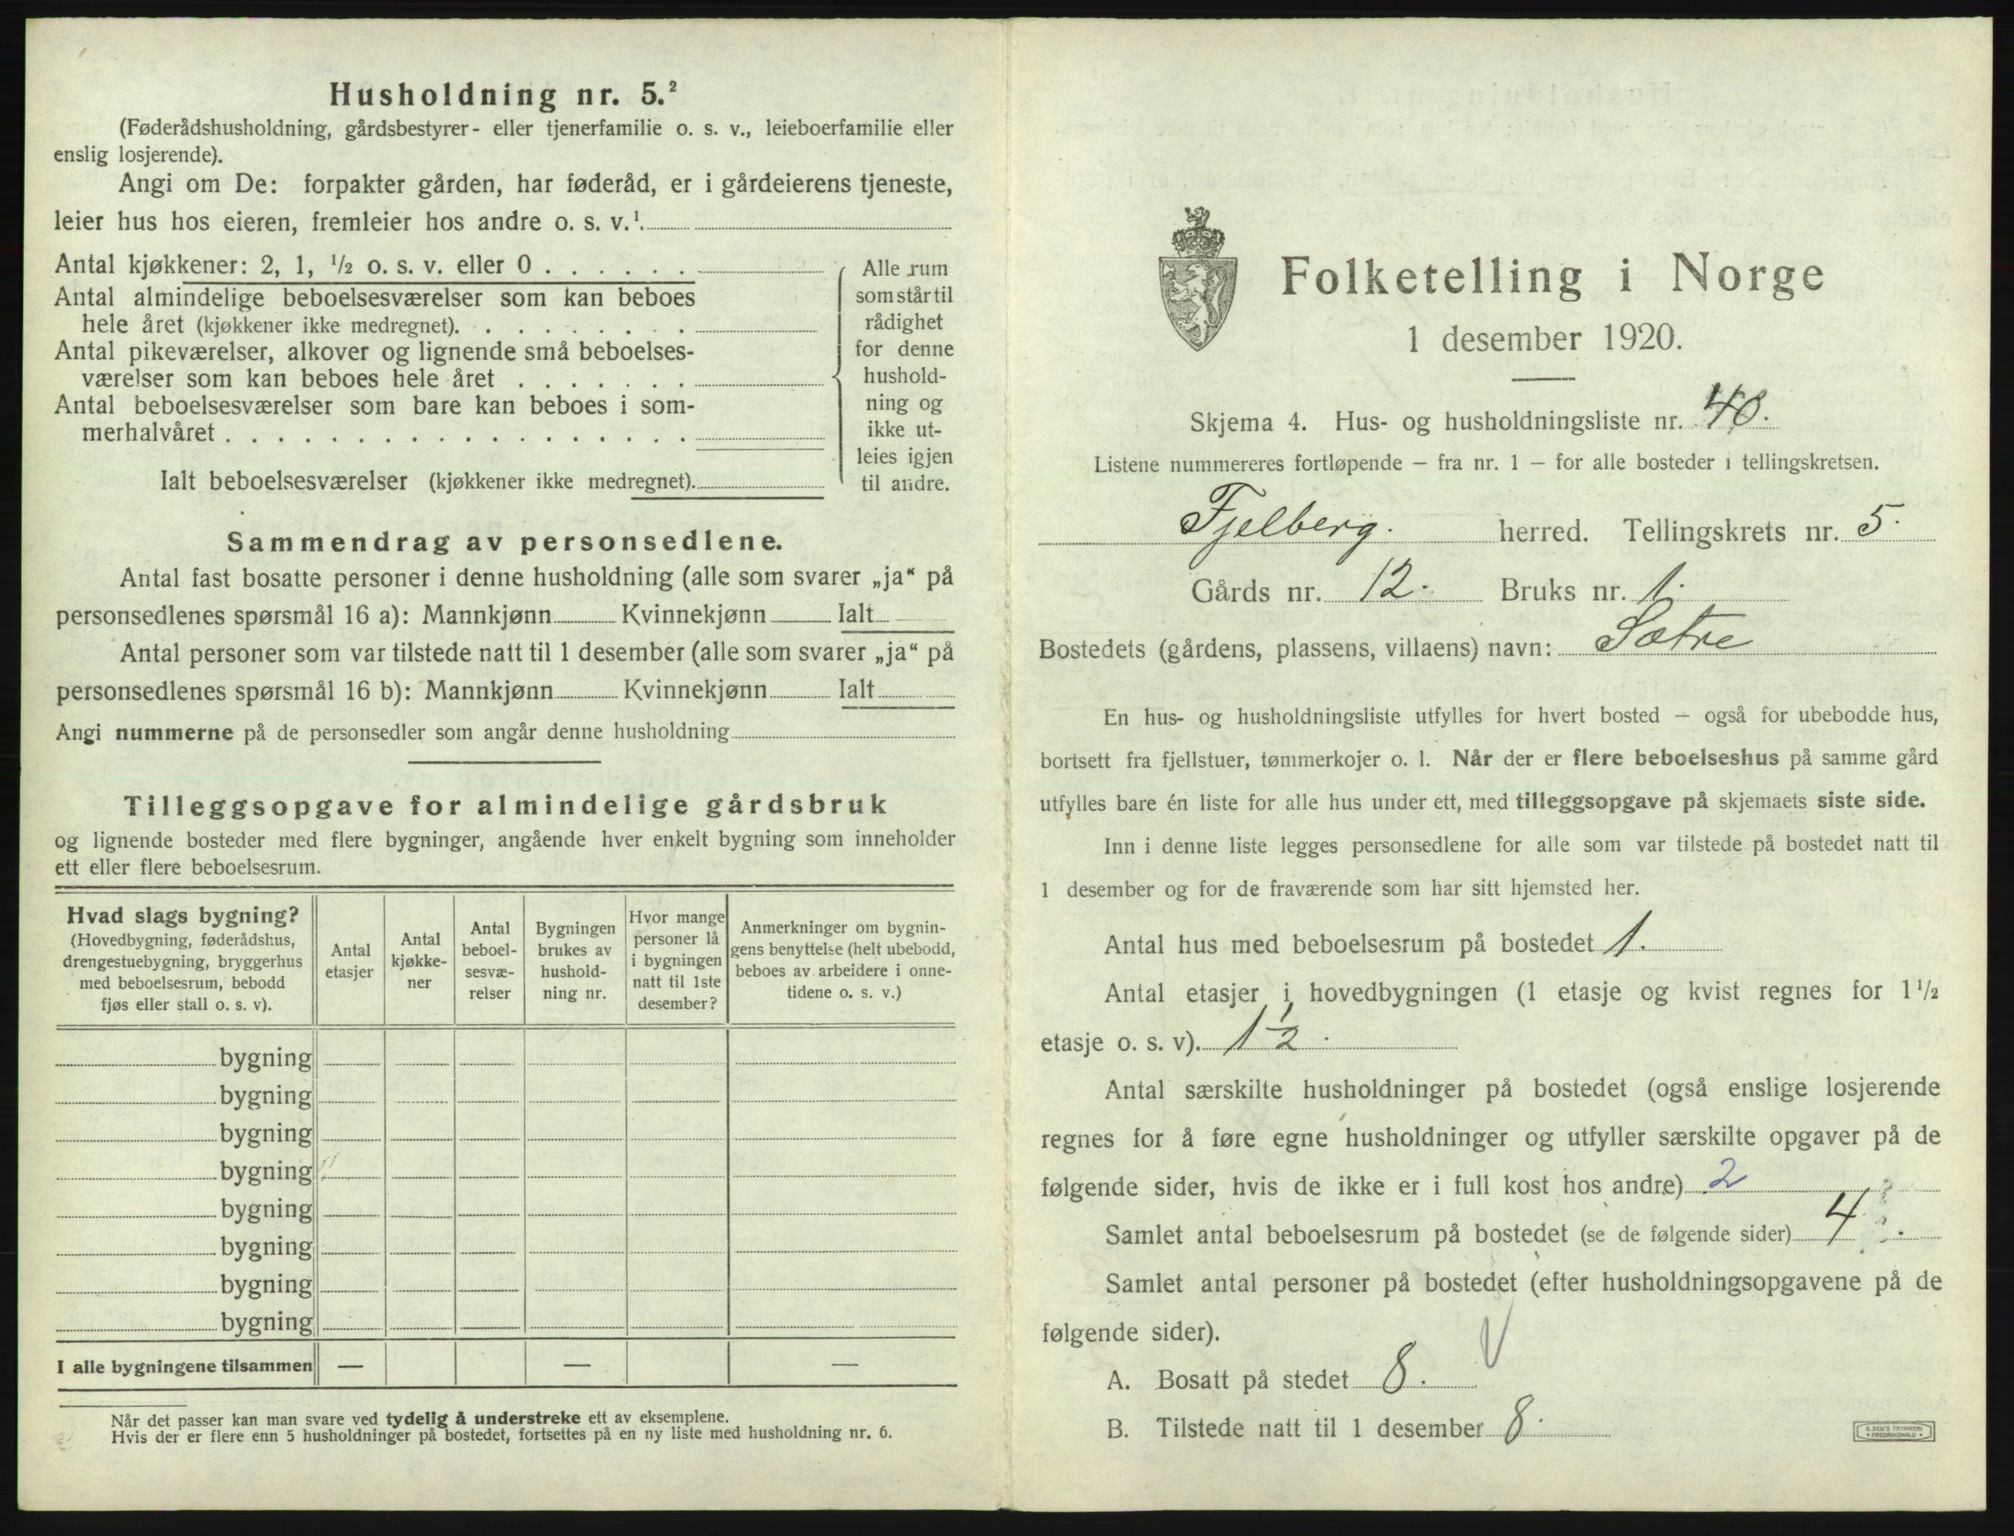 Husholdning nr. 5.²
(Føderådshusholdning, gårdsbestyrer- eller tjenerfamilie o. s. v., leieboerfamilie eller
enslig losjerende).
Angi om De: forpakter gården, har føderåd, er i gårdeierens tjeneste,
leier hus hos eieren, fremleier hos andre o. s. v.¹.
Antal kjøkkener: 2, 1, ½ o. s. v. eller 0 . . . . . .
Antal almindelige beboelsesværelser som kan beboes
hele året (kjøkkener ikke medregnet). . . . . . . . .
Antal pikeværelser, alkover og lignende små beboelses-
værelser som kan beboes hele året . . . . . . .
Antal beboelsesværelser som bare kan beboes i som-
merhalvåret . . . . . . . . . . . . . . . . . .
Ialt beboelsesværelser (kjøkkener ikke medregnet).
Alle rum
som står til
rådighet
for denne
hushold-
ning og
ikke ut-
leies igjen
til andre.
Sammendrag av personsedlene.
Antal fast bosatte personer i denne husholdning (alle som svarer „ja“ på
personsedlenes spørsmål 16 a): Mannkjønn Kvinnekjønn Ialt
Antal personer som var tilstede natt til 1 desember (alle som svarer „ja“ på
personsedlenes spørsmål 16 b): Mannkjønn Kvinnekjønn Ialt
Angi nummerne på de personsedler som angår denne husholdning
Tilleggsopgave for almindelige gårdsbruk
og lignende bosteder med flere bygninger, angående hver enkelt bygning som inneholder
ett eller flere beboelsesrum.
Hvad slags bygning?
(Hovedbygning, føderådshus,
drengestuebygning, bryggerhus
med beboelsesrum, bebodd
fjøs eller stall o. s. v).
Antal
etasjer
Antal
kjøkke-
ner
Antal
beboel-
sesvæ-
relser
Bygningen
brukes av
hushold-
ning nr.
Hvor mange
personer lå
i bygningen
natt til 1ste
desember?
Anmerkninger om bygnin-
gens benyttelse (helt ubebodd,
beboes av arbeidere i onne-
tidene o. s. v.)
bygning
bygning
bygning
bygning
bygning
bygning
bygning
bygning
I alle bygningene tilsammen — — —
Når det passer kan man svare ved tydelig å understreke ett av eksemplene.
Hvis der er flere enn 5 husholdninger på bostedet, fortsettes på en ny liste med husholdning nr. 6.
Folketelling i Norge
1 desember 1920.
Skjema 4. Hus- og husholdningsliste nr. 40.
Listene nummereres fortløpende – fra nr. 1 – for alle bosteder i tellingskretsen.
Fjelberg. herred. Tellingskrets nr. 5.
Gårds nr. 12. Bruks nr. 1.
Bostedets (gårdens, plassens, villaens) navn: Sætre
En hus- og husholdningsliste utfylles for hvert bosted – også for ubebodde hus,
bortsett fra fjellstuer, tømmerkojer o. l. Når der er flere beboelseshus på samme gård
utfylles bare én liste for alle hus under ett, med tilleggsopgave på skjemaets siste side.
Inn i denne liste legges personsedlene for alle som var tilstede på bostedet natt til
1 desember og for de fraværende som har sitt hjemsted her.
Antal hus med beboelsesrum på bostedet 1.
Antal etasjer i hovedbygningen (1 etasje og kvist regnes for 1½
etasje o. s. v). 1½.
Antal særskilte husholdninger på bostedet (også enslige losjerende
regnes for å føre egne husholdninger og utfyller særskilte opgaver på de
følgende sider, hvis de ikke er i full kost hos andre) 2
Samlet antal beboelsesrum på bostedet (se de følgende sider) 4 ? .
Samlet antal personer på bostedet (efter husholdningsopgavene på de
følgende sider).
A. Bosatt på stedet 8.
B. Tilstede natt til 1 desember 8.